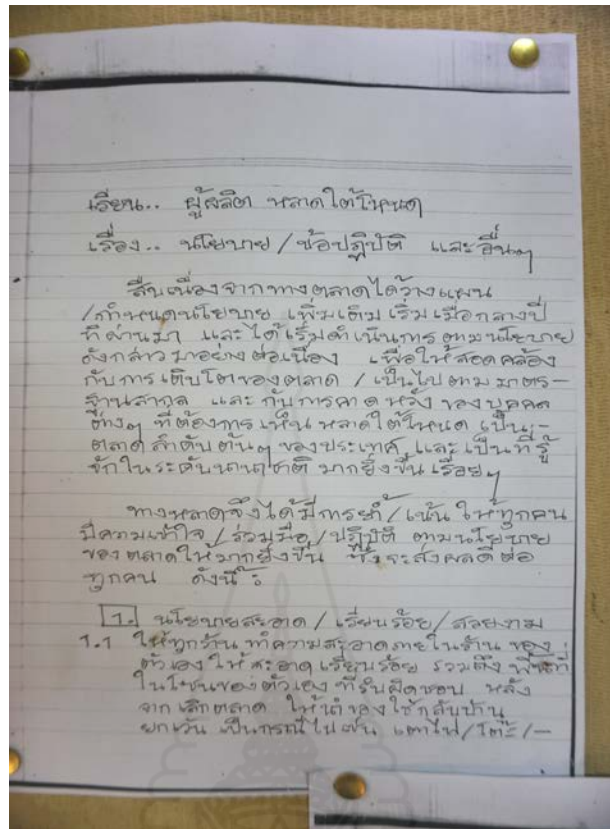 เรียน.. ผู้ผลิต หลาดใต้โหนด
เรื่อง.. นโยบาย/ข้อปฏิบัติ และอื่นๆ
สืบเนื่องจากทางตลาดได้วางแผน
/กำหนดนโยบาย เพิ่มเติม เริ่มเมื่อกลางปี
ที่ผ่านมา และได้เริ่มดำเนินการตามนโยบาย
ดังกล่าวมาอย่างต่อเนื่อง เพื่อให้สอดคล้อง
กับการเติบโตของตลาด / เป็นไปตามมาตร-
ฐานสากล และกับการคาดหวัง ของบุคคล
ต่างๆ ที่ต้องการเห็น หลาดใต้โหนด เป็น-
ตลาดลำดับต้นๆ ของประเทศ และเป็นที่รู้
จักในระดับนานาชาติ มากยิ่งขึ้นเรื่อยๆ
ทางหลาดจึงได้มีการย้ำ/เน้น ให้ทุกคน
มีความเข้าใจ /ร่วมมือ/ปฏิบัติ ตามนโยบาย
ของตลาดให้มากยิ่งขึ้น ซึ่งจะส่งผลดีต่อ
ทุกคน ดังนี้ :
1. นโยบายสะอาด/เรียบร้อย/สวยงาม
1.1 ให้ทุกร้าน ทำความสะอาดภายในร้าน ของ
ตัวเองให้สะอาด เรียบร้อย รวมถึง พื้นที่
ในโซนของตัวเอง ที่รับผิดชอบ หลัง
จากเลิกตลาด ให้นำของใช้กลับบ้าน
ยกเว้น เป็นกรณีไป เช่น เตาไฟ/โต๊ะ/-